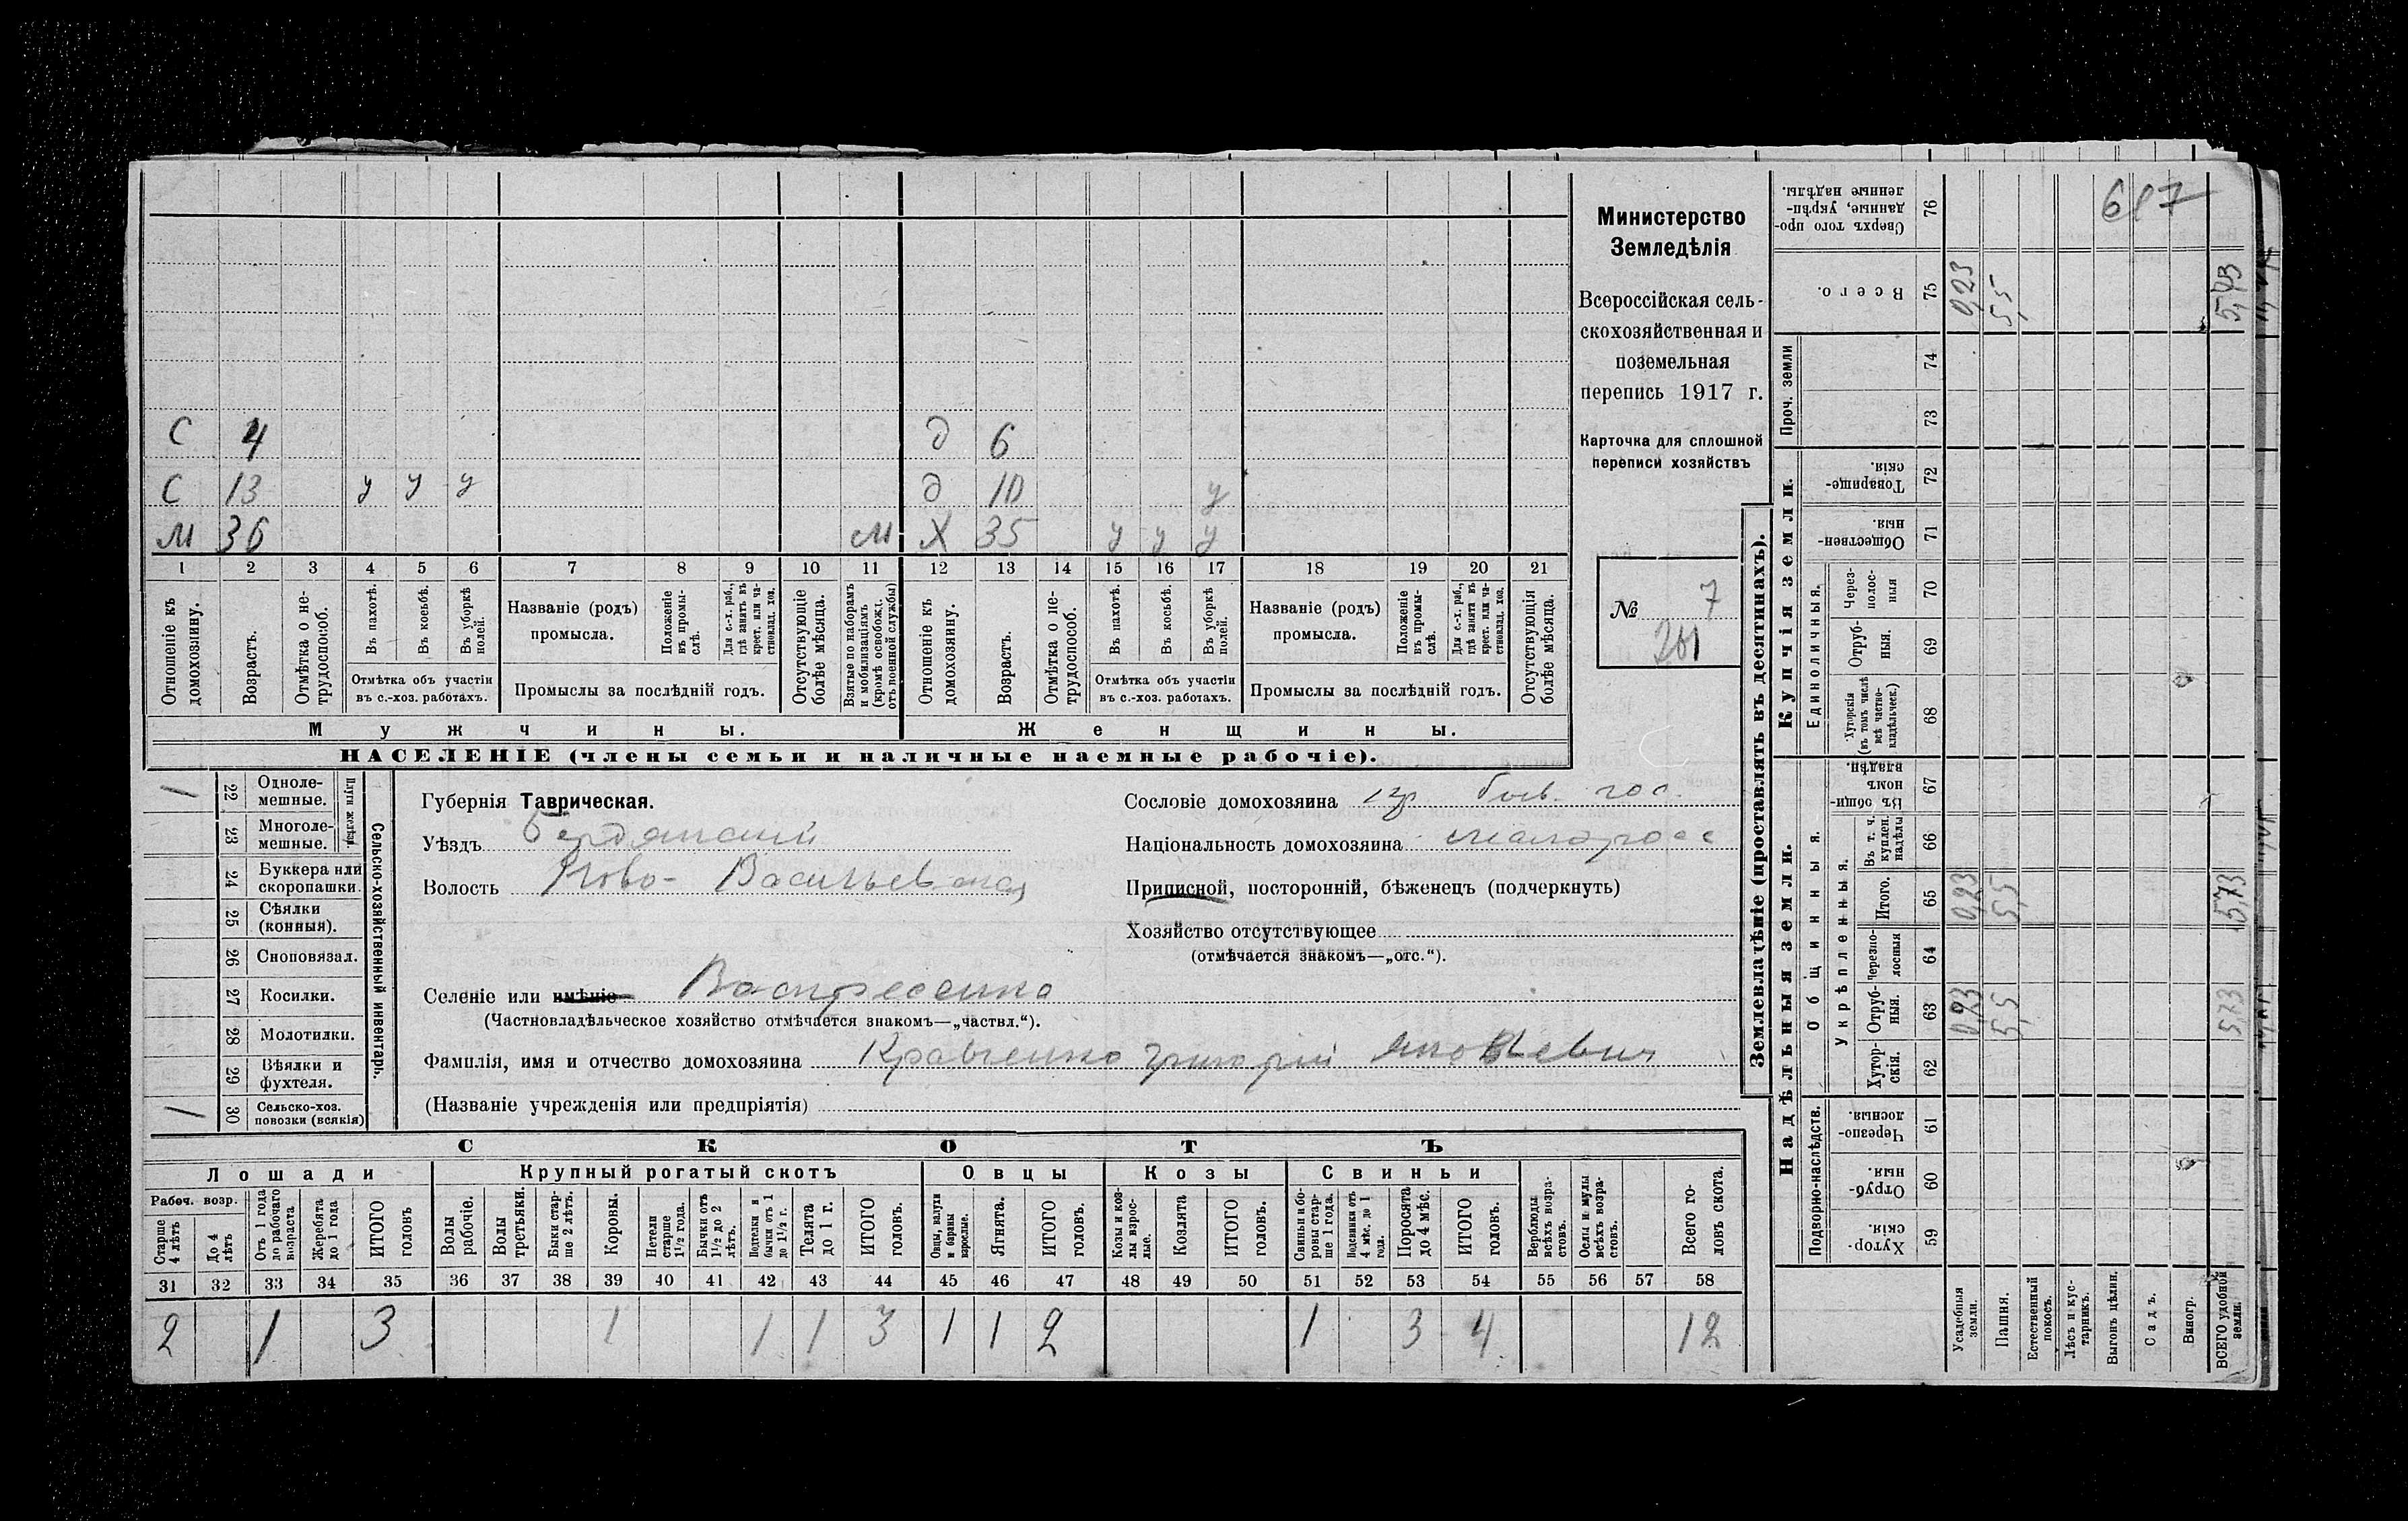 617
Министерство
Земледѣлія
Всероссійская сель-
скохозяйственная и
поземельная
перепись 1917 г.
Карточка для сплошной
переписи хозяйствъ
№ 7
261
С 4 д 6
С 13 у у у д 10 у
М 36 м Х 35 у у у
1 2 3 4 5 6 7 8 9 10 11 12 13 14 15 16 17 18 19 20 21
Отношеніе къ домохозяину.
Возрастъ.
Отмѣтка о не-трудоспособ.
Въ пахотѣ.
Въ косьбѣ.
Въ уборкѣ полей.
Отмѣтка объ участіи
въ с.-хоз. работахъ.
Названіе (родъ)
промысла.
Положеніе въ промы-слѣ.
Для с.-х. раб., гдѣ занятъ въ крест. или ча-стновлад. хоз.
Промыслы за послѣдній годъ.
Отсутствующіе болѣе мѣсяца.
Взятые по наборамъ и мобилизаціямъ (кромѣ освобожд. отъ военной службы)
Отношеніе къ домохозяину.
Возрастъ.
Отмѣтка о не-трудоспособ.
Въ пахотѣ.
Въ косьбѣ.
Въ уборкѣ полей.
Отмѣтка объ участіи
въ с.-хоз. работахъ.
Названіе (родъ)
промысла.
Положеніе въ промы-слѣ.
Для с.-х. раб., гдѣ занята въ крест. или ча-стновлад. хоз.
Промыслы за послѣдній годъ.
Отсутствующія болѣе мѣсяца.
Мужчины. Женщины.
НАСЕЛЕНІЕ (члены семьи и наличные наемные рабочіе).
Сельско-хозяйственный инвентарь.
Плуги желѣзн.
1 22 Одноле-мешные.
23 Многоле-мешные.
24 Буккера или скоропашки.
25 Сѣялки (конныя).
26 Сноповязал.
27 Косилки.
28 Молотилки.
29 Вѣялки и фухтеля.
1 30 Сельско-хоз. повозки (всякія)
Губернія Таврическая.
Уѣздъ Бердянский
Волость Ново-Васильевская
Сословіе домохозяина кр. бывш. гос.
Національность домохозяина малоросс
Приписной, посторонній, бѣженецъ (подчеркнуть)
Хозяйство отсутствующее
(отмѣчается знакомъ—„отс.“).
Селеніе или имѣніе Воскресенка
(Частновладѣльческое хозяйство отмѣчается знакомъ—„частвл.“).
Фамилія, имя и отчество домохозяина Кравченко Григорій Яковлевич
(Названіе учрежденія или предпріятія)
СКОТЪ
Лошади Крупный рогатый скотъ Овцы Козы Свиньи
Рабоч. возр.
Старше 4 лѣтъ
До 4 лѣтъ
Отъ 1 года до рабочаго возраста
Жеребята до 1 года
ИТОГО головъ
Волы рабочіе.
Волы третьяки.
Быки стар-ше 2 лѣтъ.
Коровы.
Нетели старше 1½ года.
Бычки отъ 1½ до 2 лѣтъ.
Подтелки и бычки отъ 1 до 1½ г.
Телята до 1 г.
ИТОГО головъ.
Овцы, валухи и бараны взрослые.
Ягнята.
ИТОГО головъ.
Козы и коз-лы взрос-лые.
Козлята
ИТОГО головъ.
Свиньи и бо-ровы стар-ше 1 года.
Подсвинки отъ 4 мѣс. до 1 года.
Поросята до 4 мѣс.
ИТОГО головъ.
Верблюды всѣхъ возра-стовъ.
Ослы и мулы всѣхъ возра-стовъ.
Всего го-ловъ скота.
31 32 33 34 35 36 37 38 39 40 41 42 43 44 45 46 47 48 49 50 51 52 53 54 55 56 57 58
2 1 3 1 1 1 3 1 1 2 1 3 4 12
Землевладѣніе (проставлять въ десятинахъ).
Надѣльныя земли. Купчія земли. Проч. земли
Подворно-наслѣдств.
Общинныя.
Укрѣпленныя.
Единоличныя.
59 Хутор-скія.
60 Отруб-ныя.
61 Черезпо-лосныя.
62 Хутор-скія.
63 Отруб-ныя. 0,23 5,5 5,73
64 Черезпо-лосныя
65 Итого. 0,23 5,5 5,73
66 Въ т. ч. куплен. надѣлы
67 Въ общи-номъ владѣн.
68 Хуторскія (въ томъ числѣ всѣ частно-владѣльческ.)
69 Отруб-ныя.
70 Через-полос-ныя
71 Обществен-ныя.
72 Товарище-скія.
73
74
75 Всего. 0,23 5,5 5,73
76 Сверхъ того про-данные, укрѣп-ленные надѣлы.
Усадебныя земли.
Пашня.
Естественный покосъ.
Лѣсъ и кус-тарникъ.
Выгонъ цѣлин.
Садъ.
Виногр.
ВСЕГО удобной земли.